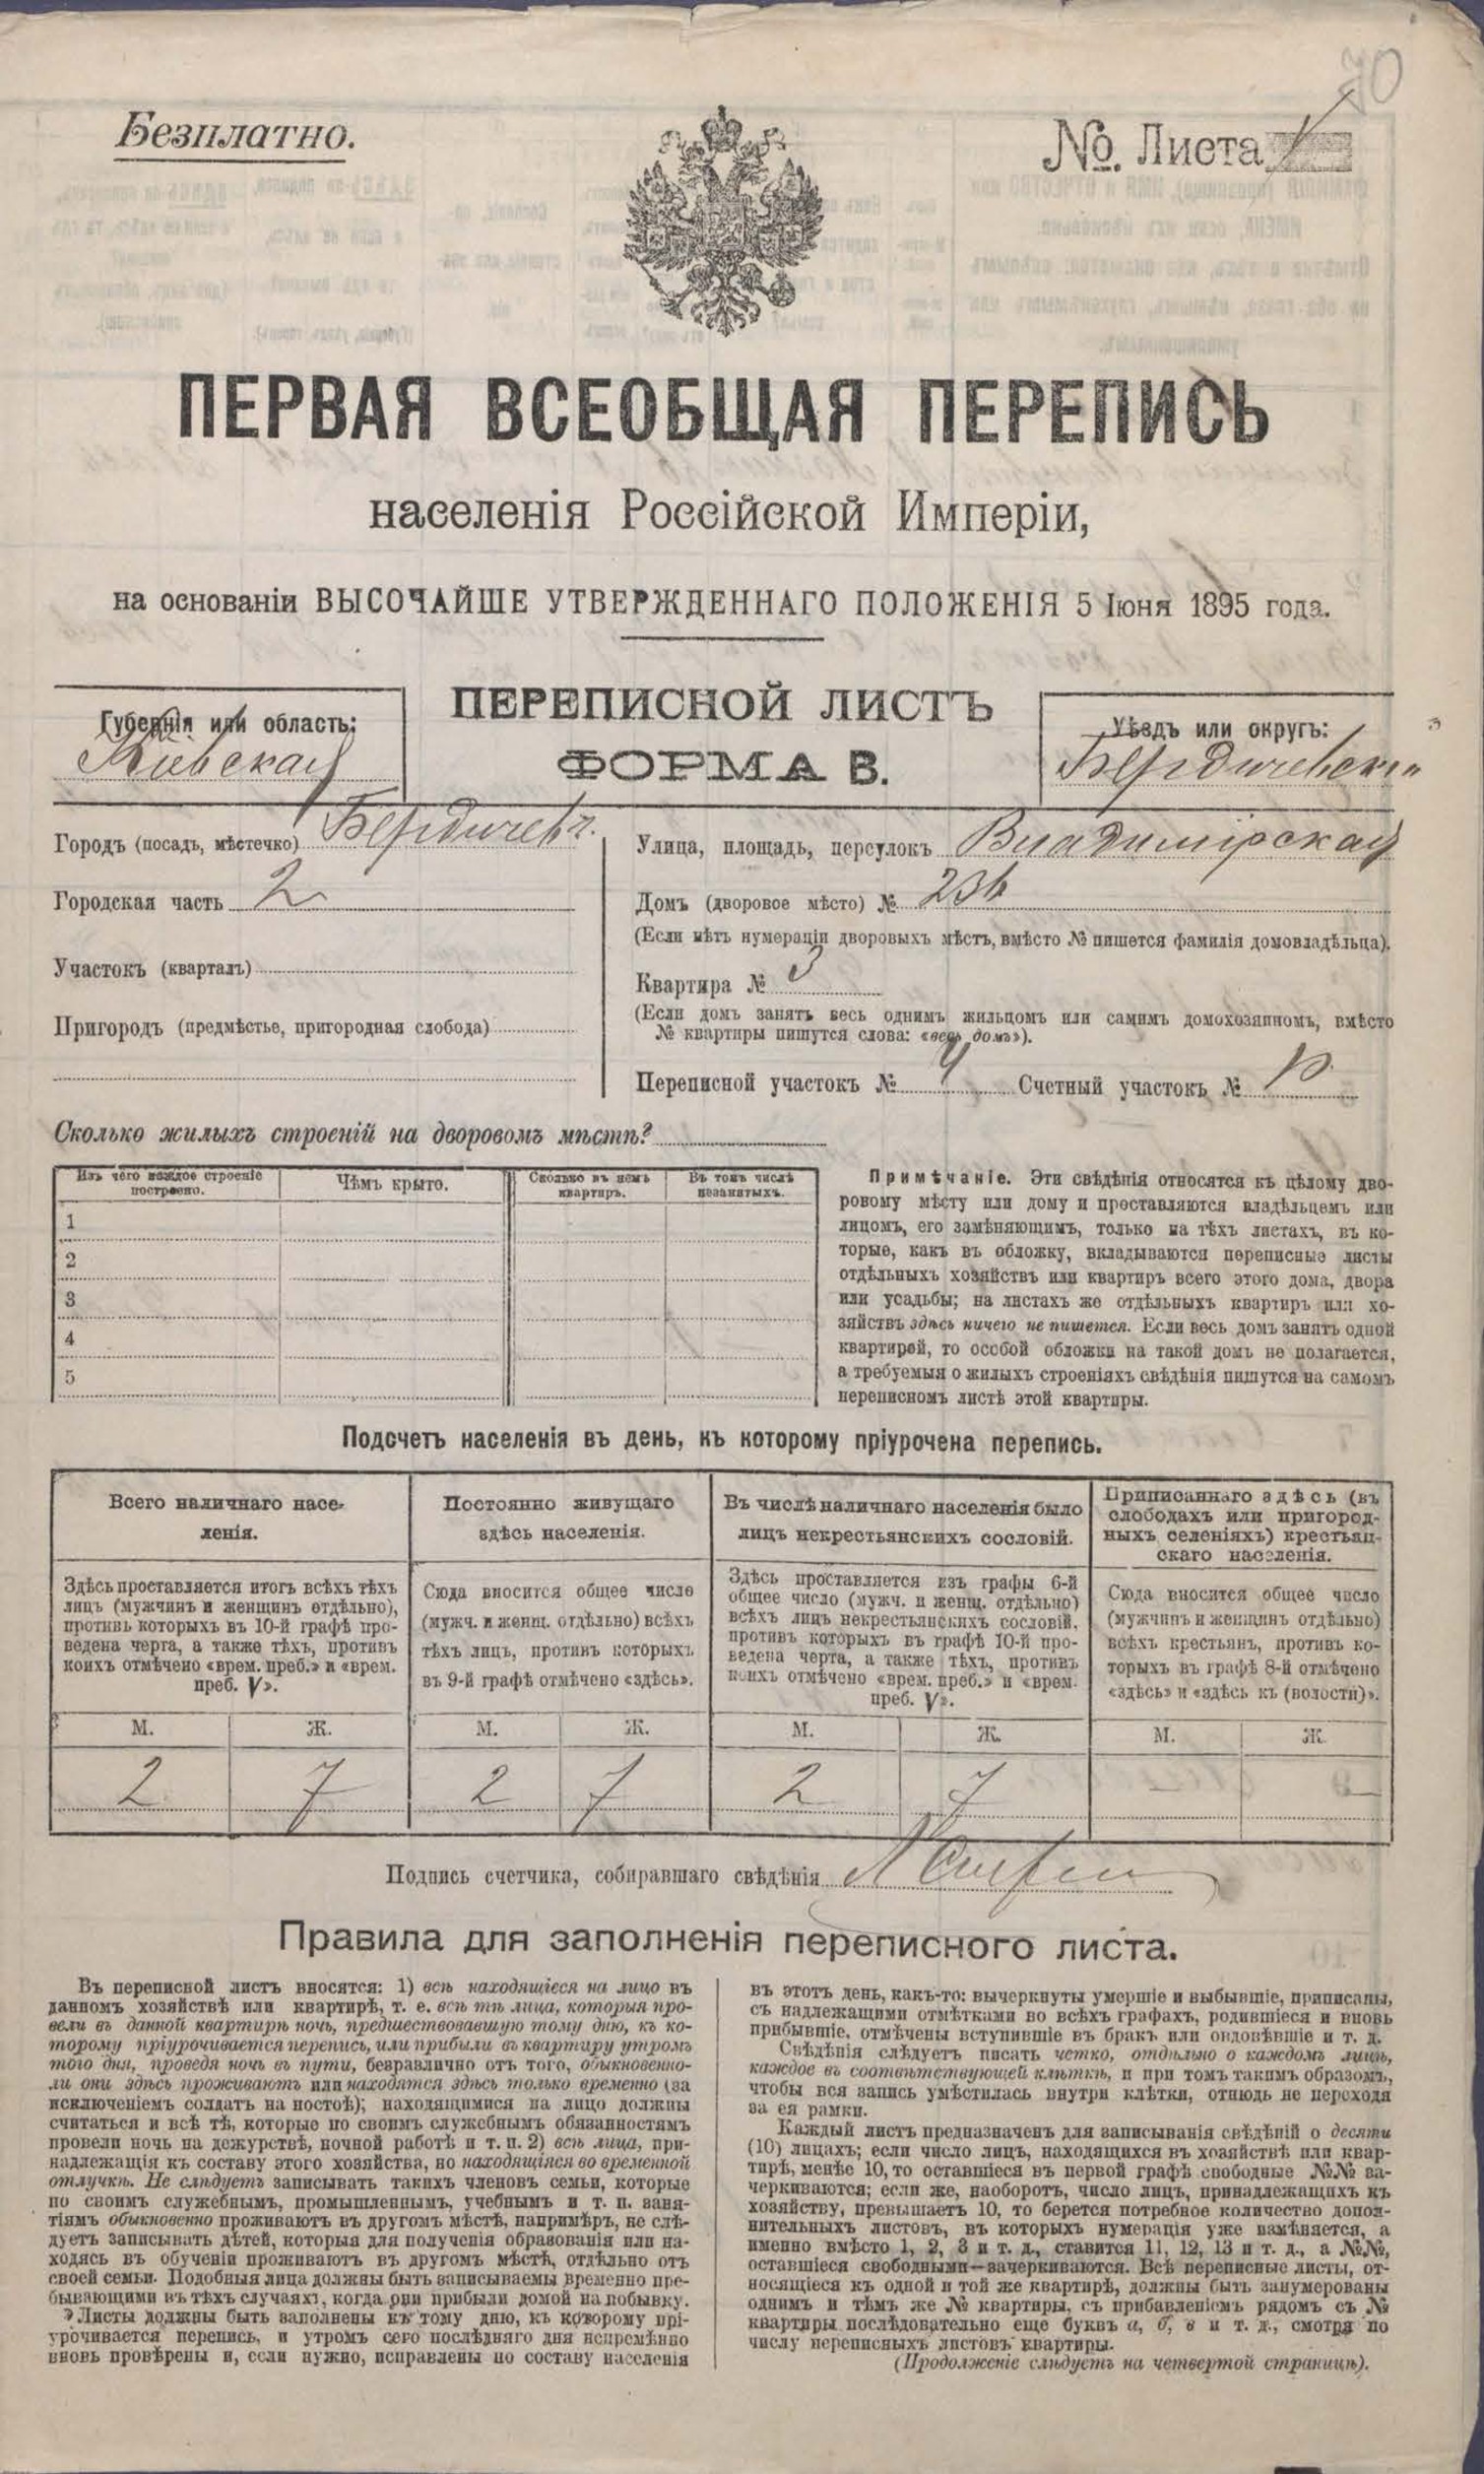 70
Безплатно.
№. Листа
ПЕРВАЯ ВСЕОБЩАЯ ПЕРЕПИСЬ
населенія Россійской Имперіи,
на основаніи ВЫСОЧАЙШЕ УТВЕРЖДЕННАГО ПОЛОЖЕНІЯ 5 Іюня 1895 года.
ПЕРЕПИСНОЙ ЛИСТЪ
ФОРМА В.
Губернія или область:
Кіевская
Уѣздъ или округъ:
Бердичевскій
Городъ (посадъ, мѣстечко) Бердичевъ
Городская часть 2
Участокъ (кварталъ)
Пригородъ (предмѣстье, пригородная слобода)
Улица, площадь, переулокъ Владимірская
Домъ (дворовое мѣсто) №
(Если нѣтъ нумераціи дворовыхъ мѣстъ, вмѣсто № пишется фамилія домовладѣльца).
Квартира № 3
(Если домъ занятъ весь однимъ жильцомъ или самимъ домохозяиномъ, вмѣсто
№ квартиры пишутся слова: «весь домъ»).
Переписной участокъ № Счетный участокъ №
Сколько жилыхъ строеній на дворовомъ мѣстѣ?
Изъ чего каждое строеніе построено. Чѣмъ крыто. Сколько въ немъ квартиръ. Въ томъ числѣ незанятыхъ.
1
2
3
4
5
Примѣчаніе. Эти свѣдѣнія относятся къ цѣлому дво-
ровому мѣсту или дому и проставляются владѣльцемъ или
лицомъ, его замѣняющимъ, только на тѣхъ листахъ, въ ко-
торые, какъ въ обложку, вкладываются переписные листы
отдѣльныхъ хозяйствъ или квартиръ всего этого дома, двора
или усадьбы; на листахъ же отдѣльныхъ квартиръ или хо-
зяйствъ здѣсь ничего не пишется. Если весь домъ занятъ одной
квартирой, то особой обложки на такой домъ не полагается,
а требуемыя о жилыхъ строеніяхъ свѣдѣнія пишутся на самомъ
переписномъ листѣ этой квартиры.
Подсчетъ населенія въ день, къ которому пріурочена перепись.
Всего наличнаго насе-
ленія.
Здѣсь проставляется итогъ всѣхъ тѣхъ
лицъ (мужчинъ и женщинъ отдѣльно),
противъ которыхъ въ 10-й графѣ про-
ведена черта, а также тѣхъ, противъ
коихъ отмѣчено «врем. преб.» и «врем.
преб. V».
М. Ж.
2 7
Постоянно живущаго
здѣсь населенія.
Сюда вносится общее число
(мужч. и женщ. отдѣльно) всѣхъ
тѣхъ лицъ, противъ которыхъ
въ 9-й графѣ отмѣчено «здѣсь».
М. Ж.
2 7
Въ числѣ наличнаго населенія было
лицъ некрестьянскихъ сословій.
Здѣсь проставляется изъ графы 6-й
общее число (мужч. и женщ. отдѣльно)
всѣхъ лицъ некрестьянскихъ сословій,
противъ которыхъ въ графѣ 10-й про-
ведена черта, а также тѣхъ, противъ
коихъ отмѣчено «врем. преб.» и «врем.
преб. V».
М. Ж.
2 7
Приписаннаго здѣсь (въ
слободахъ или пригород-
ныхъ селеніяхъ) крестьян-
скаго населенія.
Сюда вносится общее число
(мужчинъ и женщинъ отдѣльно)
всѣхъ крестьянъ, противъ ко-
торыхъ въ графѣ 8-й отмѣчено
«здѣсь» и «здѣсь къ (волости)».
М. Ж.
— —
Подпись счетчика, собиравшаго свѣдѣнія
Правила для заполненія переписного листа.
Въ переписной листъ вносятся: 1) всѣ находящіеся на лицо въ
данномъ хозяйствѣ или квартирѣ, т. е. всѣ тѣ лица, которыя про-
вели въ данной квартирѣ ночь, предшествовавшую тому дню, къ ко-
торому пріурочивается перепись, или прибыли въ квартиру утромъ
того дня, проведя ночь въ пути, безразлично отъ того, обыкновенно-
ли они здѣсь проживаютъ или находятся здѣсь только временно (за
исключеніемъ солдатъ на постоѣ); находящимися на лицо должны
считаться и всѣ тѣ, которые по своимъ служебнымъ обязанностямъ
провели ночь на дежурствѣ, ночной работѣ и т. п. 2) всѣ лица, при-
надлежащія къ составу этого хозяйства, но находящіяся во временной
отлучкѣ. Не слѣдуетъ записывать такихъ членовъ семьи, которые
по своимъ служебнымъ, промышленнымъ, учебнымъ и т. п. заня-
тіямъ обыкновенно проживаютъ въ другомъ мѣстѣ, напримѣръ, не слѣ-
дуетъ записывать дѣтей, которыя для полученія образованія или на-
ходясь въ обученіи проживаютъ въ другомъ мѣстѣ, отдѣльно отъ
своей семьи. Подобныя лица должны быть записываемы временно пре-
бывающими въ тѣхъ случаяхъ, когда они прибыли домой на побывку.
Листы должны быть заполнены къ тому дню, къ которому прі-
урочивается перепись, и утромъ сего послѣдняго дня непремѣнно
вновь провѣрены и, если нужно, исправлены по составу населенія
въ этотъ день, какъ-то: вычеркнуты умершіе и выбывшіе, приписаны,
съ надлежащими отмѣтками во всѣхъ графахъ, родившіеся и вновь
прибывшіе, отмѣчены вступившіе въ бракъ или овдовѣвшіе и т. д.
Свѣдѣнія слѣдуетъ писать четко, отдѣльно о каждомъ лицѣ,
каждое въ соотвѣтствующей клѣткѣ, и при томъ такимъ образомъ,
чтобы вся запись умѣстилась внутри клѣтки, отнюдь не переходя
за ея рамки.
Каждый листъ предназначенъ для записыванія свѣдѣній о десяти
(10) лицахъ; если число лицъ, находящихся въ хозяйствѣ или квар-
тирѣ, менѣе 10, то оставшіеся въ первой графѣ свободные №№ за-
черкиваются; если же, наоборотъ, число лицъ, принадлежащихъ къ
хозяйству, превышаетъ 10, то берется потребное количество допол-
нительныхъ листовъ, въ которыхъ нумерація уже измѣняется, а
именно вмѣсто 1, 2, 3 и т. д., ставится 11, 12, 13 и т. д., а №№,
оставшіеся свободными—вачеркиваются. Всѣ переписные листы, от-
носящіеся къ одной и той же квартирѣ, должны быть занумерованы
однимъ и тѣмъ же № квартиры, съ прибавленіемъ рядомъ съ №
квартиры послѣдовательно еще буквъ а, б, в и т. д., смотря по
числу переписныхъ листовъ квартиры.
(Продолженіе слѣдуетъ на четвертой страницѣ).